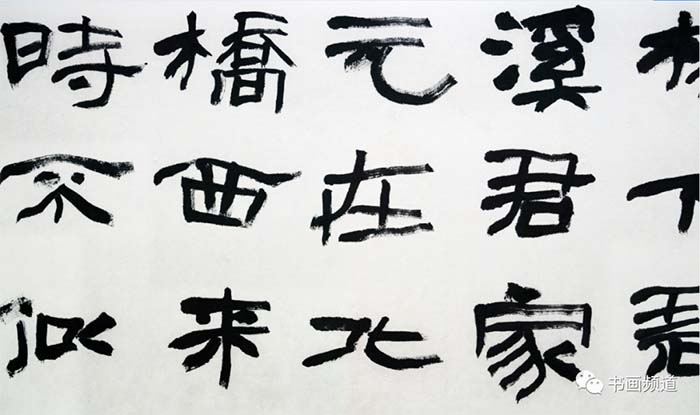 溪君家
元在北
橋西来
時不似
书画频道